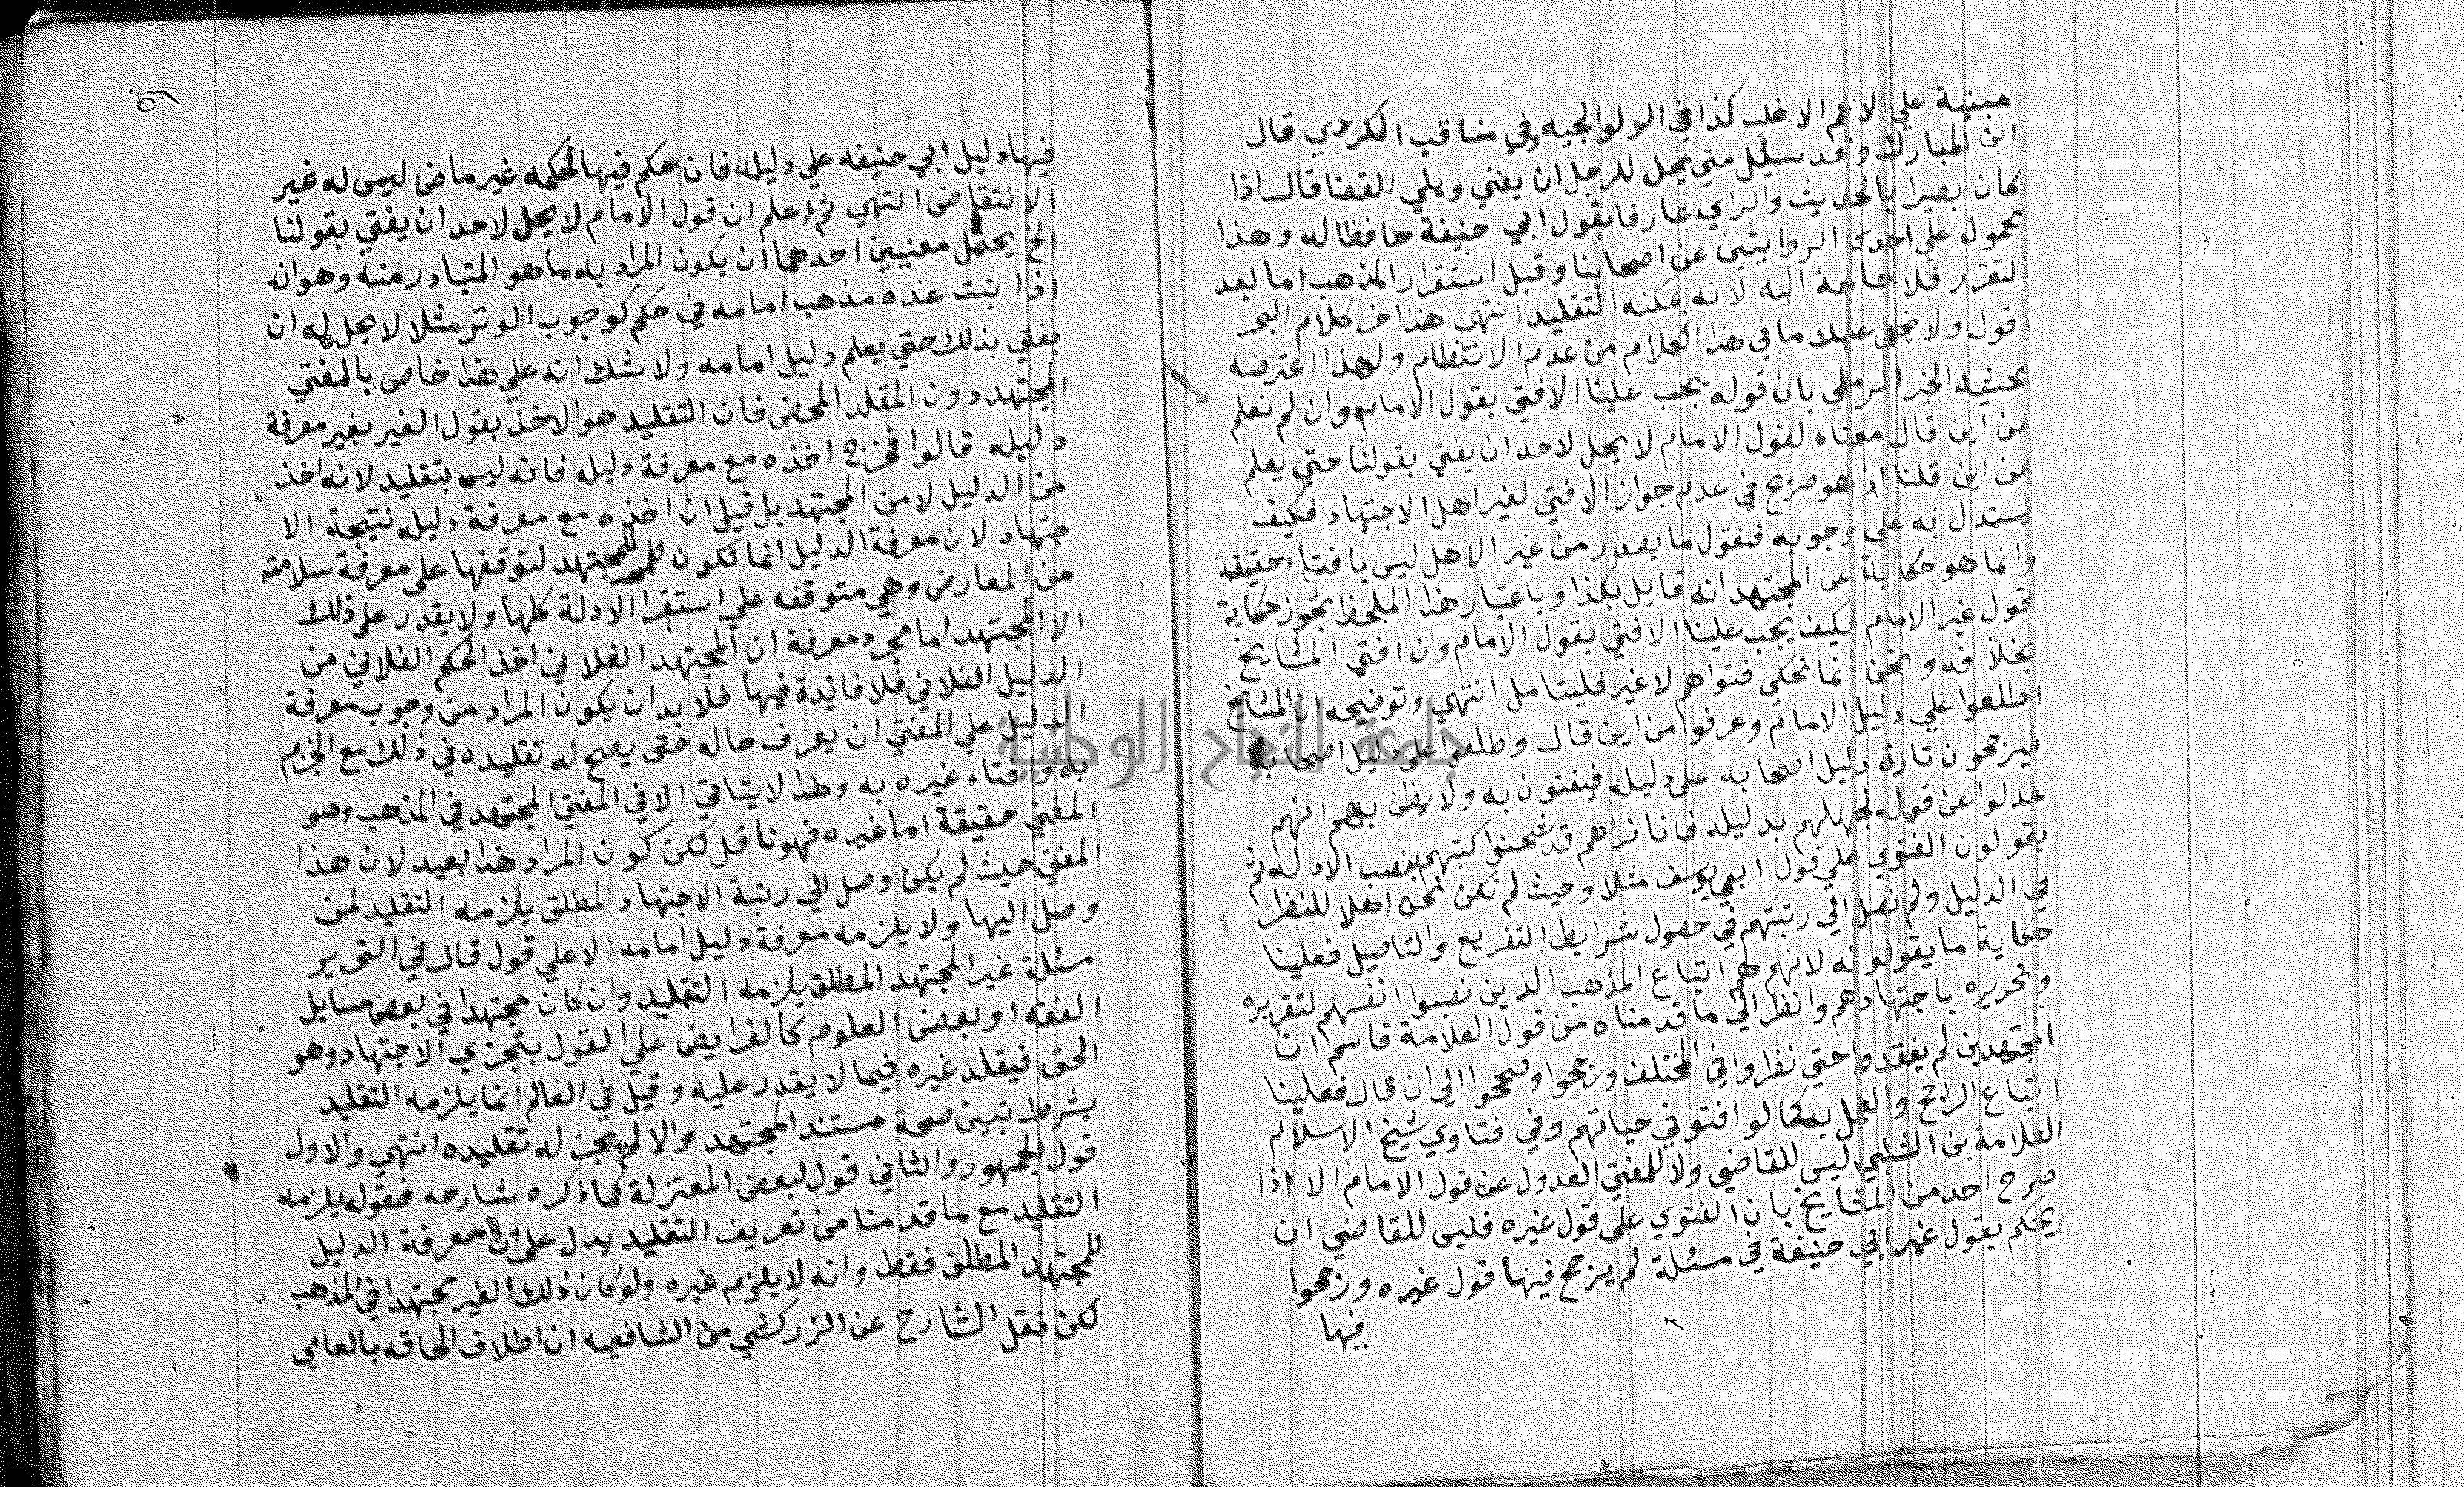 مبنية علي لانهم الاغلب كذا في الولوالجيه وفي مناقب الكردري قال
ابن المبارك وقد سئل متي يحل للرجل ان يفتي ويلي القضا قال اذا
كان بصيرا بالحديث والراي عارفا بقول ابي حنيفة حافظا له وهذا
محمول علي احدي الروايتين عن اصحابنا وقبل استقرار المذهب اما بعد
التقرر فلا حاجة اليه لانه يمكنه التقليد انتهي هذا اخر كلام البحر
قول ولا يخفي عليك ما في هذا الكلام من عدم الانتظام ولهذا اعترضه
محشيه الخير الرملي بان قوله يجب علينا الافتي بقول الامام وان لم نعلم
من اين قال معناه لقول الامام لا يحل لاحد ان يفتي بقولنا حتي يعلم
من اين قلنا اذ هو صريح في عدم جواز الافتي لغير اهل الاجتهاد فكيف
يستدل به علي وجوبه فنقول ما يصدر من غير الاهل ليس بافتاء حقيقة
وانما هو حكاية عن المجتهد انه قايل بكذا وباعتبار هذا الملحظ تجوز حكاية
قول غير الامام فكيف يجب علينا الافتي بقول الامام وان افتي المشايخ
بخلافه ونحن انما نحكي فتواهم لا غير فليتامل انتهي وتوضيحه ان المشايخ
اطلعوا علي دليل الامام وعرفوا من اين قال واطلعوا علي دليل اصحابه
فيرجحون تارة دليل اصحابه علي دليله فيفتون به ولا يظن بهم انهم
عدلوا عن قوله لجهلهم بدليله فانا نراهم قد شحنوا كتبهم بنصب الادله ثم
يقولون الفتوي علي قول ابي يوسف مثلا وحيث لم نكن نحن اهلا للنظر
في الدليل ولم نصل الي رتبتهم في حصول شرايط التفريع والتاصيل فعلينا
حكاية ما يقولونه لانهم هم اتباع المذهب الذين نصبوا انفسهم لتقريره
وتحريره باجتهادهم وانظر الي ما قدمناه من قول العلامة قاسم ان
المجتهدين لم يفقدوا حتي نظروا في المختلف ورجحوا وصححوا الي ان قال فعلينا
اتباع الراجح والعمل به كما لو افتو في حياتهم وفي فتاوي شيخ الاسلام
العلامة بن الشلبي ليس للقاضي ولا للمفتي العدول عن قول الامام الا اذا
صرح احد من المشايخ بان الفتوي علي قول غيره فليس للقاضي ان
يحكم بقول غير ابي حنيفة في مسئلة لم يرجح فيها قول غيره ورجحوا
فيها
فيها دليل ابي حنيفه علي دليله فان حكم فيها فحكمه غير ماض ليس له غير
الانتقاض انتهي ثم اعلم ان قول الامام لا يحل لاحد ان يفتي بقولنا
الخ يحتمل معنيين احدهما ان يكون المراد به ما هو المتبادر منه وهو انه
اذا ثبت عنده مذهب امامه في حكم كوجوب الوتر مثلا لا يحل له ان
يفتي بذلك حتي يعلم دليل امامه ولا شك انه علي هذا خاص بالمفتي
المجتهد دون المقلد المحض فان التقليد هو الاخذ بقول الغير بغير معرفة
دليله قالوا فخرج اخذه مع معرفة دليله فانه ليس بتقليد لانه اخذ
من الدليل لا من المجتهد بل قيل ان اخذه مع معرفة دليله نتيجة الا
جتهاد لان معرفة الدليل انما تكون للمجتهد لتوقفها علي معرفة سلامته
من المعارض وهي متوقفه علي استقرا الادلة كلها ولا يقدر علي ذلك
الا المجتهد اما مجرد معرفة ان المجتهد الفلاني اخذ الحكم الفلاني من
الدليل الفلاني فلا فائدة فيها فلا بد ان يكون المراد من وجوب معرفة
الدليل علي المفتي ان يعرف حاله حتي يصح له تقليده في ذلك مع الجزم
به وافتاء غيره به وهذا لا يتاتي الا في المفتي المجتهد في المذهب وهو
المفتي حقيقة اما غيره فهو ناقل لكن كون المراد هذا بعيد لان هذا
المفتي حيث لم يكن وصل الي رتبة الاجتهاد المطلق يلزمه التقليد لمن
وصل اليها ولا يلزمه معرفة دليل امامه الا علي قول قال في التحرير
مسئلة غير المجتهد المطلق يلزمه التقليد وان كان مجتهدا في بعض مسايل
الفقه او بعض العلوم كالفرايض علي القول بتجزي الاجتهاد وهو
الحق فيقلد غيره فيما لا يقدر عليه وقيل في العالم انما يلزمه التقليد
بشرط تبين صحة مستند المجتهد والا لم يجز له تقليده انتهي والاول
قول الجمهور والثاني قول لبعض المعتزلة كما ذكره شارحه فقوله يلزمه
التقليد مع ما قدمنا من تعريف التقليد يدل علي ان معرفة الدليل
للمجتهد المطلق فقط وانه لا يلزم غيره ولو كان ذلك الغير مجتهدا في المذهب
لكن نقل الشارح عن الزركشي من الشافعيه ان اطلاق الحاقه بالعامي
جامعة النجاح الوطنية